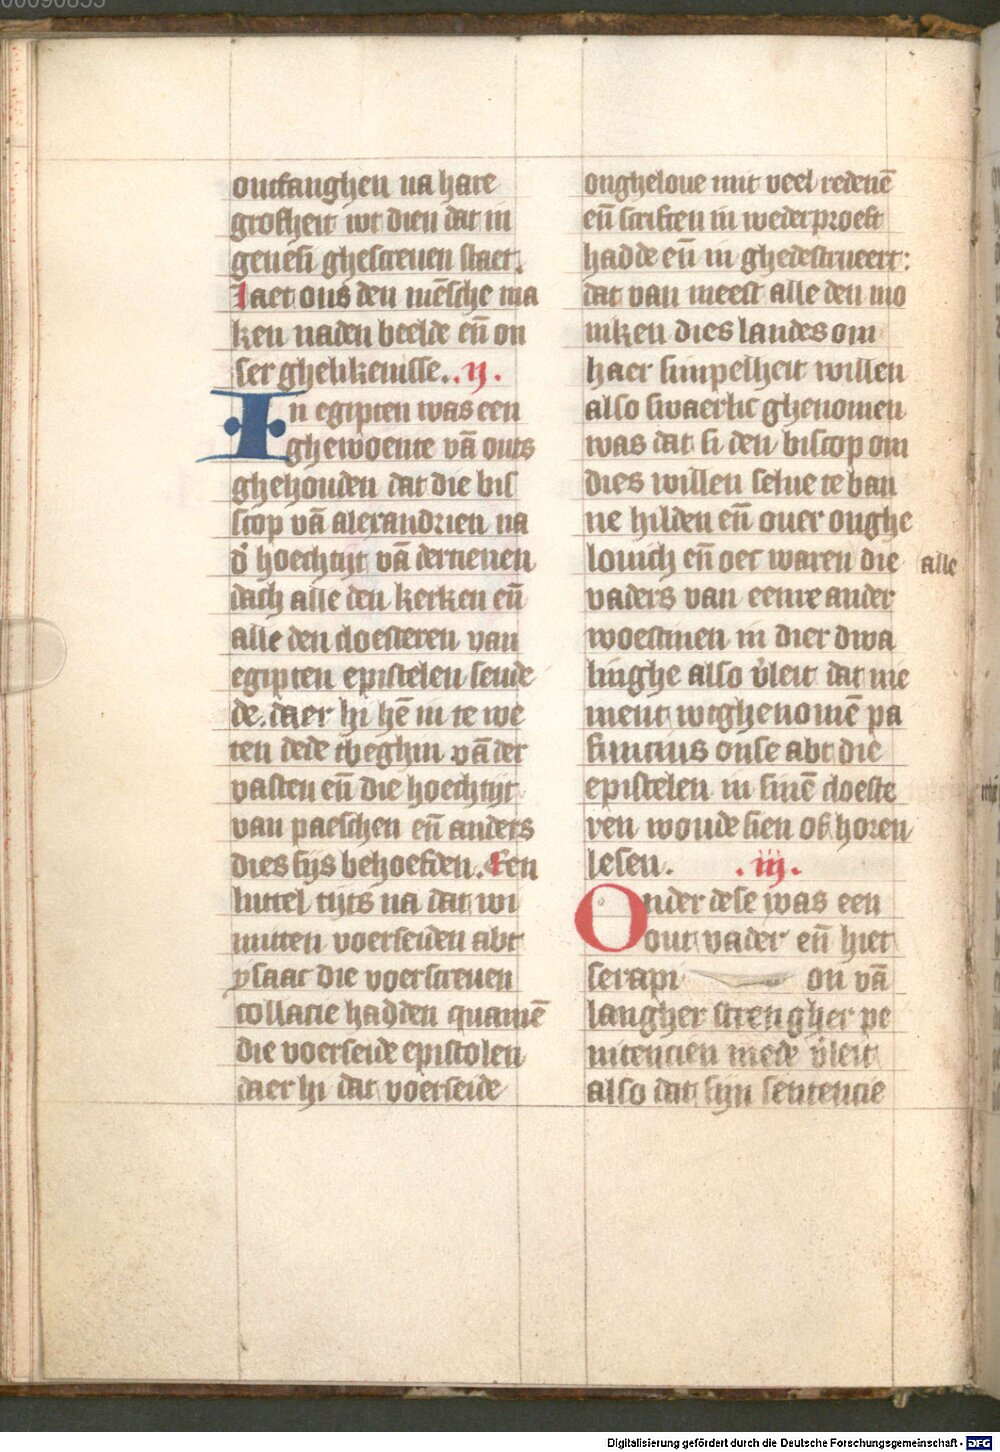 ontfanghen na hare
grofheit wt dien dat in
genesi ghescreuen staet.
Laet ons den mēsche ma
ken naden beelde eñ on
ser ghelikenisse. .ij.
In egipten was een
ghewoente vā outs
ghehouden dat die bis
scop vā alexandrien na
d' hoechtijt vā dertienen
dach alle den kerken eñ
alle den cloesteren van
egipten epistelen sende
de. daer hi hē in te we
ten dede tbeghin vā der
vasten eñ die hoechtijt
van paeschen eñ anders
dies sijs behoefden. Een
luttel tijts na dat wi
mitten voerseiden abt
ysaac die voerscreuen
collacie hadden quamē
die voerseide epistolen
daer hi dat voerseide
ongheloue mit veel redenē
eñ scriften in wederproeft
hadde eñ in ghedestrueert:
dat van meest alle den mo
niken dies landes om
haer simpelheit willen
also swaerlic ghenomen
was dat si den biscop om
dies willen selue te ban
ne hilden eñ ouer onghe
louich eñ oec waren die alle
vaders van eenre ander
woestinen in dier dwa
linghe also v'leit dat nie
ment wtghenomē pa
funcius onse abt die
epistelen in sinē cloeste
ren woude sien of horen
lesen. .iij.
Onder dese was een
out vader eñ hiet
serapi on vā
langher strengher pe
nitencien mede v'leit
also dat sijn sentencie
Digitalisierung gefördert durch die Deutsche Forschungsgemeinschaft - DFG